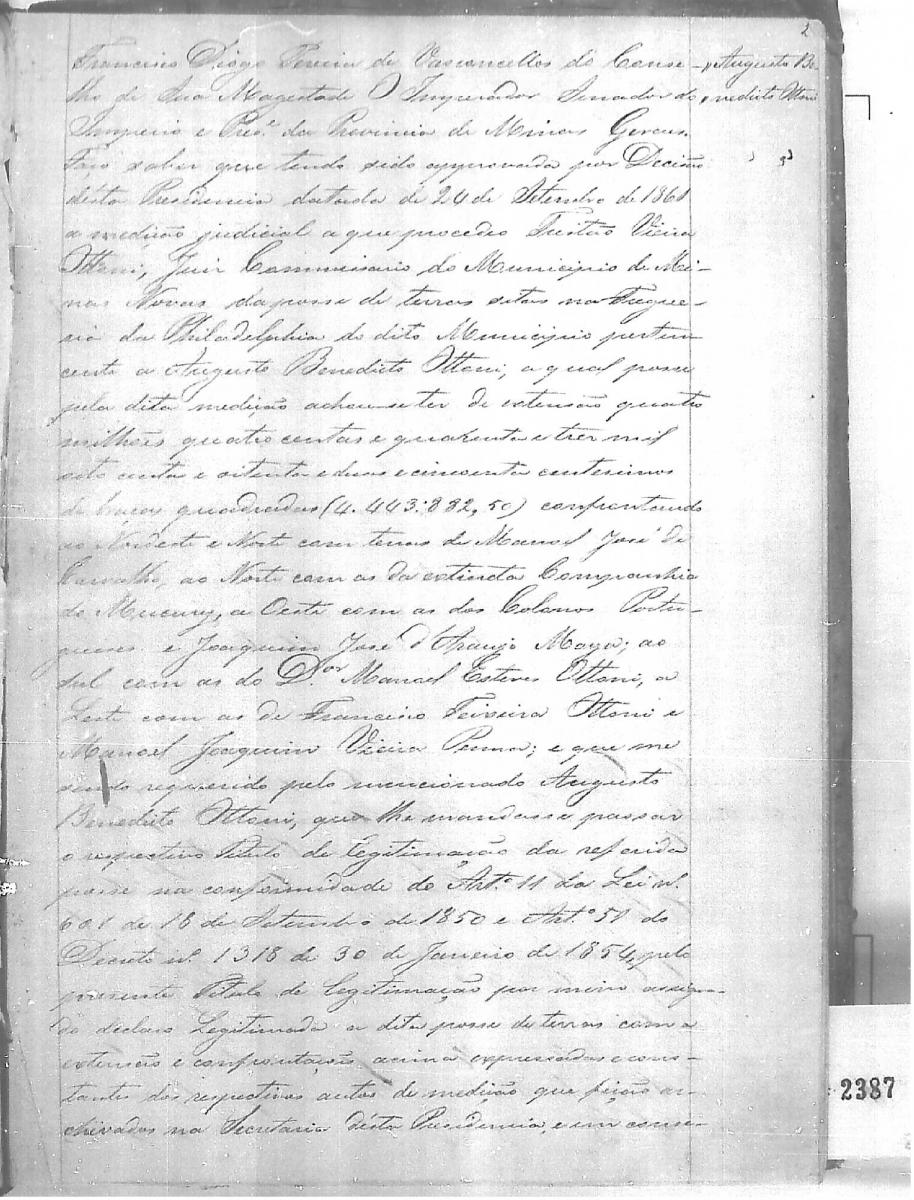 2
Francisco Diogo Pereira de Vasconcellos do Conse-
lho de Sua Magestade O Imperador Senador do
Imperio e Pres.e da Provincia de Minas Geraes.
Augusto Be-
nedicto Ottoni
Faço saber que tendo sido approvada por Decisão
désta Presidencia datada de 24 de Setembro de 1861
a medição judicial a que procedeo Tristão Vieira
Ottoni, Juiz Commissario do Municipio de Mi-
nas Novas da posse de terras sitas na Fregue-
sia da Philadelphia do dito Municipio perten-
cente a Augusto Benedicto Ottoni, a qual posse
pela dita medição achou-se ter de extensão quatro
milhões quatro centas e quarenta e tres mil
oito centas e oitenta e duas e cincoenta centesimos
de braças quadradas (4.443.882,50) confrontando
ao Nordeste e Norte com terras de Manoel José de
Carvalho, ao Norte com as da extincta Companhia
do Mucury, a Oeste com as dos Colonos Portu-
gueses e Joaquim José d'Araujo Maya; ao
Sul com as do D.or Manoel Esteves Ottoni, a
Leste com as de Francisco Teixeira Ottoni e
Manoel Joaquim Vieira Penna; e que me
sendo requerido pelo mencionado Augusto
Benedicto Ottoni, que lhe mandasse passar
o respectivo Titulo de Legitimação da referida
posse na conformidade do Art.º 11 da Lei n.º
601 de 18 de Setembro de 1850 e Art.º 51 do
Decreto n.º 1318 de 30 de Janeiro de 1854, pelo
presente Titulo de Legitimação por mim assigna-
do declaro Legitimada a dita posse de terras com a
extensão e confrontação acima expressadas e cons-
tantes dos respectivos autos de medição que ficão ar-
chivados na Secretaria désta Presidencia, e em conse-
2387